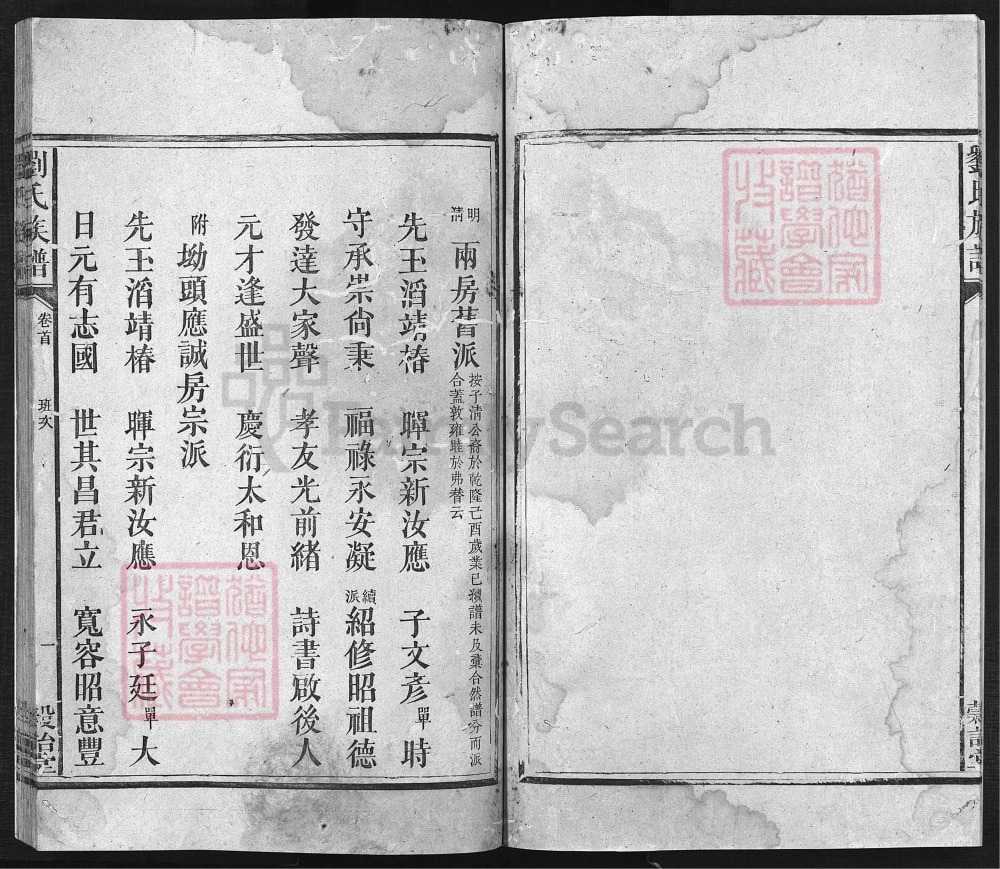 劉氏族譜
明清兩房舊派 按子清公裔於乾隆己酉歲業已續譜未及彙合然譜分而派合蓋敦雍睦於弗替云
先玉滔靖椿 暉宗新汝應 子文彦單時
守承崇尙秉 福祿永安凝 續派紹修昭祖德
發達大家聲 孝友光前緒 詩書啟後人
元才逢盛世 慶衍太和恩
附坳頭應誠房宗派
先玉滔靖椿 暉宗新汝應 永子廷單大
日元有志國 世其昌君立 寬容昭意豐
劉氏族譜 卷首 班次 一
FamilySearch